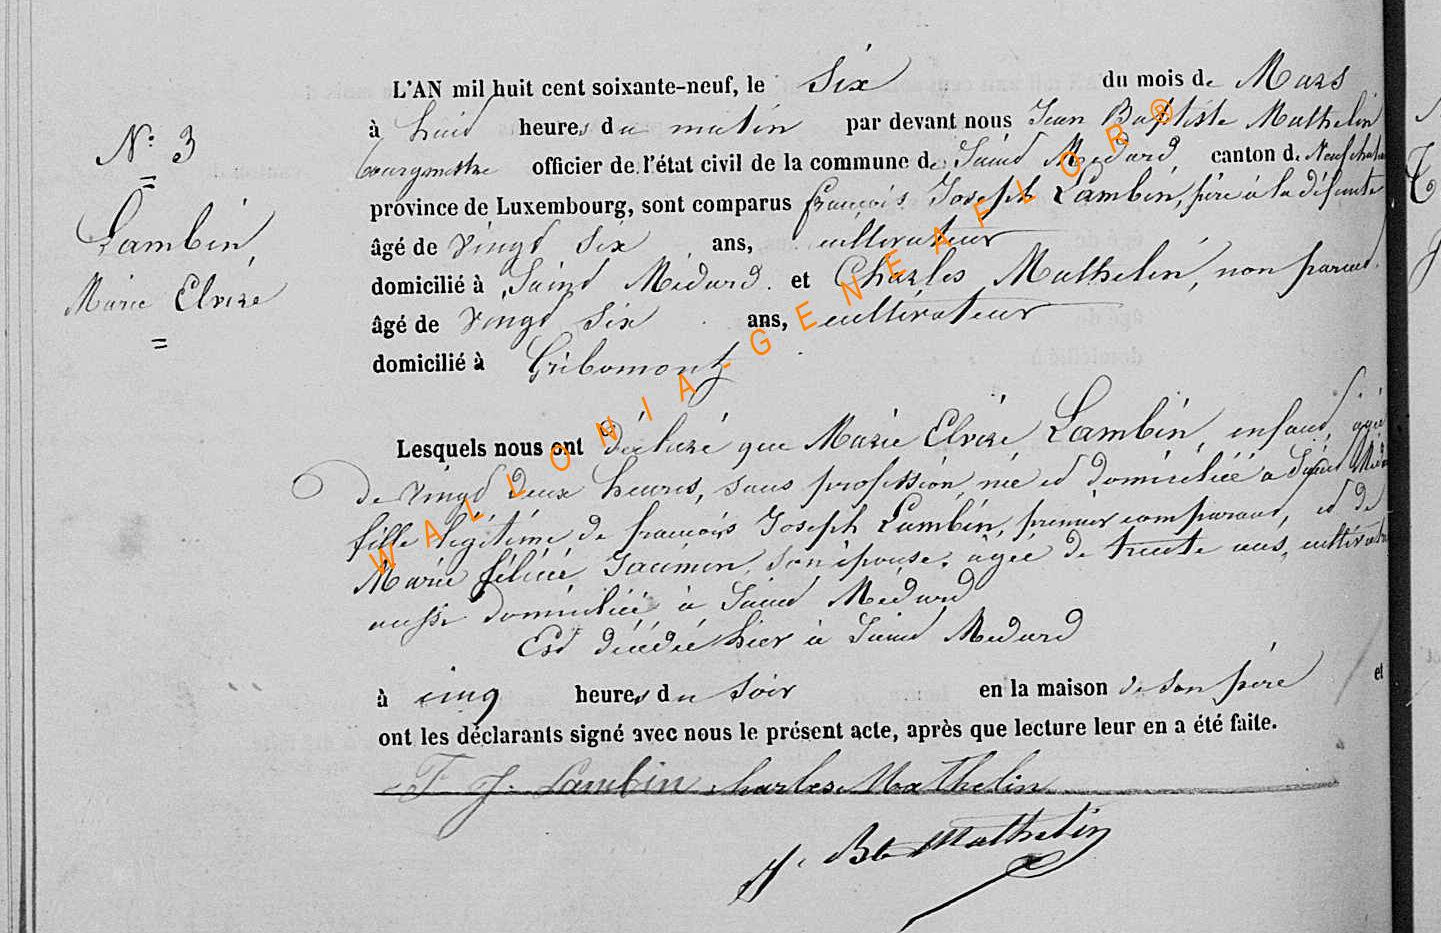 N° 3
Lambin,
Marie Elvire
L'AN mil huit cent soixante-neuf, le Six du mois de Mars
à huit heures du matin par devant nous Jean Baptiste Mathelin
bourgmestre officier de l'état civil de la commune de Saint Médard canton de Neufchateau
province de Luxembourg, sont comparus françois Joseph Lambin, père à la défunte
âgé de vingt six ans, cultivateur
domicilié à Saint Médard. et Charles Mathelin, non parent.
âgé de vingt six ans, cultivateur
domicilié à Gribomont
Lesquels nous ont déclaré que Marie Elvire Lambin, enfant, agée
de vingt deux heures, sans profession, née et domiciliée à Saint Médard
fille légitime de françois Joseph Lambin, premier comparant, et de
Marie félicie Jacmin, son épouse, agée de trente ans, cultivatrice
aussi domiciliée à Saint Médard
Est décédée hier à Saint Médard
à cinq heures du soir en la maison de son père et
ont les déclarants signé avec nous le présent acte, après que lecture leur en a été faite.
F J. Lambin charles Mathelin
J. Bte Mathelin
WALLONIA-GENEAFLOR®